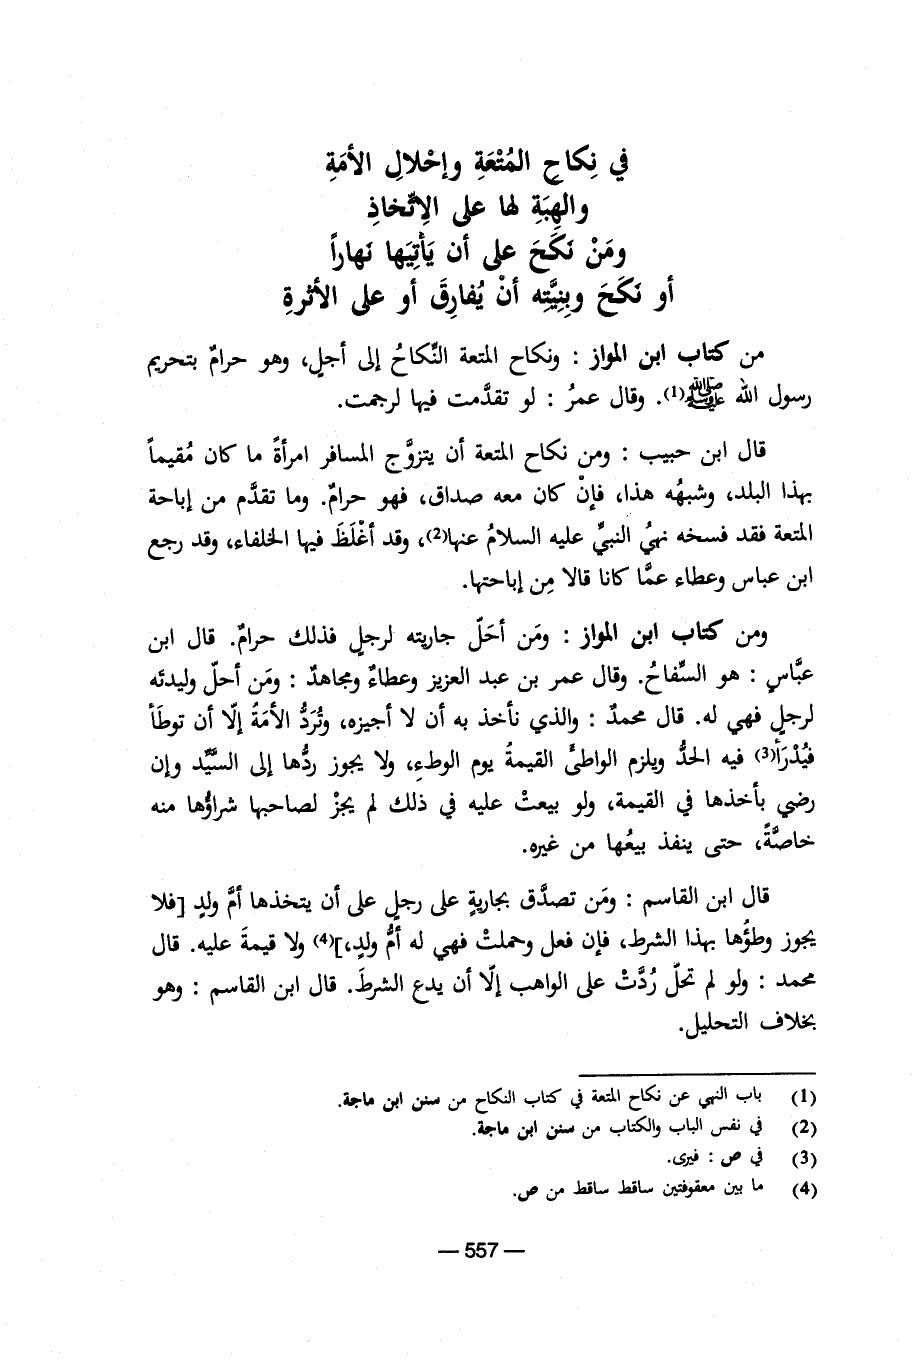 في نِكاحِ المُتْعَةِ وإحْلالِ الأمَةِ
والهِبَةِ لها على الاِتِّخاذِ
ومَنْ نَكَحَ على أن يَأتِيَها نَهاراً
أو نَكَحَ وبِنِيَّتِه أنْ يُفارِقَ أو على الأثرةِ
من كتاب ابن المواز : ونكاح المتعة النِّكاحُ إلى أجلٍ، وهو حرامٌ بتحريم
رسول الله ﷺ(1). وقال عمرُ : لو تقدَّمت فيها لرجمت.
قال ابن حبيب : ومن نكاح المتعة أن يتزوَّج المسافر امرأةً ما كان مُقيماً
بهذا البلد، وشبهُه هذا، فإنْ كان معه صداق، فهو حرامٌ. وما تقدَّم من إباحة
المتعة فقد فسخه نهيُ النبيِّ عليه السلامُ عنها(2)، وقد أغْلَظَ فيها الخلفاء، وقد رجع
ابن عباس وعطاء عمَّا كانا قالا مِن إباحتها.
ومن كتاب ابن المواز : ومَن أحَلّ جاريته لرجلٍ فذلك حرامٌ. قال ابن
عبَّاسٍ : هو السِّفاحُ. وقال عمر بن عبد العزيز وعطاءٌ ومجاهدٌ : ومَن أحلّ وليدتَه
لرجلٍ فهي له. قال محمدٌ : والذي نأخذ به أن لا أجيزه، وتُرَدُّ الأمَةُ إلّا أن توطَأ
فيُدْرَأ(3) فيه الحدُّ ويلزم الواطئَ القيمةُ يوم الوطءِ، ولا يجوز ردُّها إلى السَّيِّد وإن
رضي بأخذها في القيمة، ولو بيعتْ عليه في ذلك لم يجزْ لصاحبها شراؤُها منه
خاصَّةً، حتى ينفذ بيعُها من غيره.
قال ابن القاسم : ومَن تصدَّق بجاريةٍ على رجلٍ على أن يتخذها أمَّ ولدٍ [فلا
يجوز وطؤُها بهذا الشرط، فإن فعل وحملتْ فهي له أمُّ ولدٍ،](4) ولا قيمةَ عليه. قال
محمد : ولو لم تحلّ رُدَّتْ على الواهب إلّا أن يدع الشرطَ. قال ابن القاسم : وهو
بخلاف التحليل.
(1) باب النهي عن نكاح المتعة في كتاب النكاح من سنن ابن ماجة.
(2) في نفس الباب والكتاب من سنن ابن ماجة.
(3) في ص : فيرى.
(4) ما بين معقوفتين ساقط ساقط من ص.
— 557 —